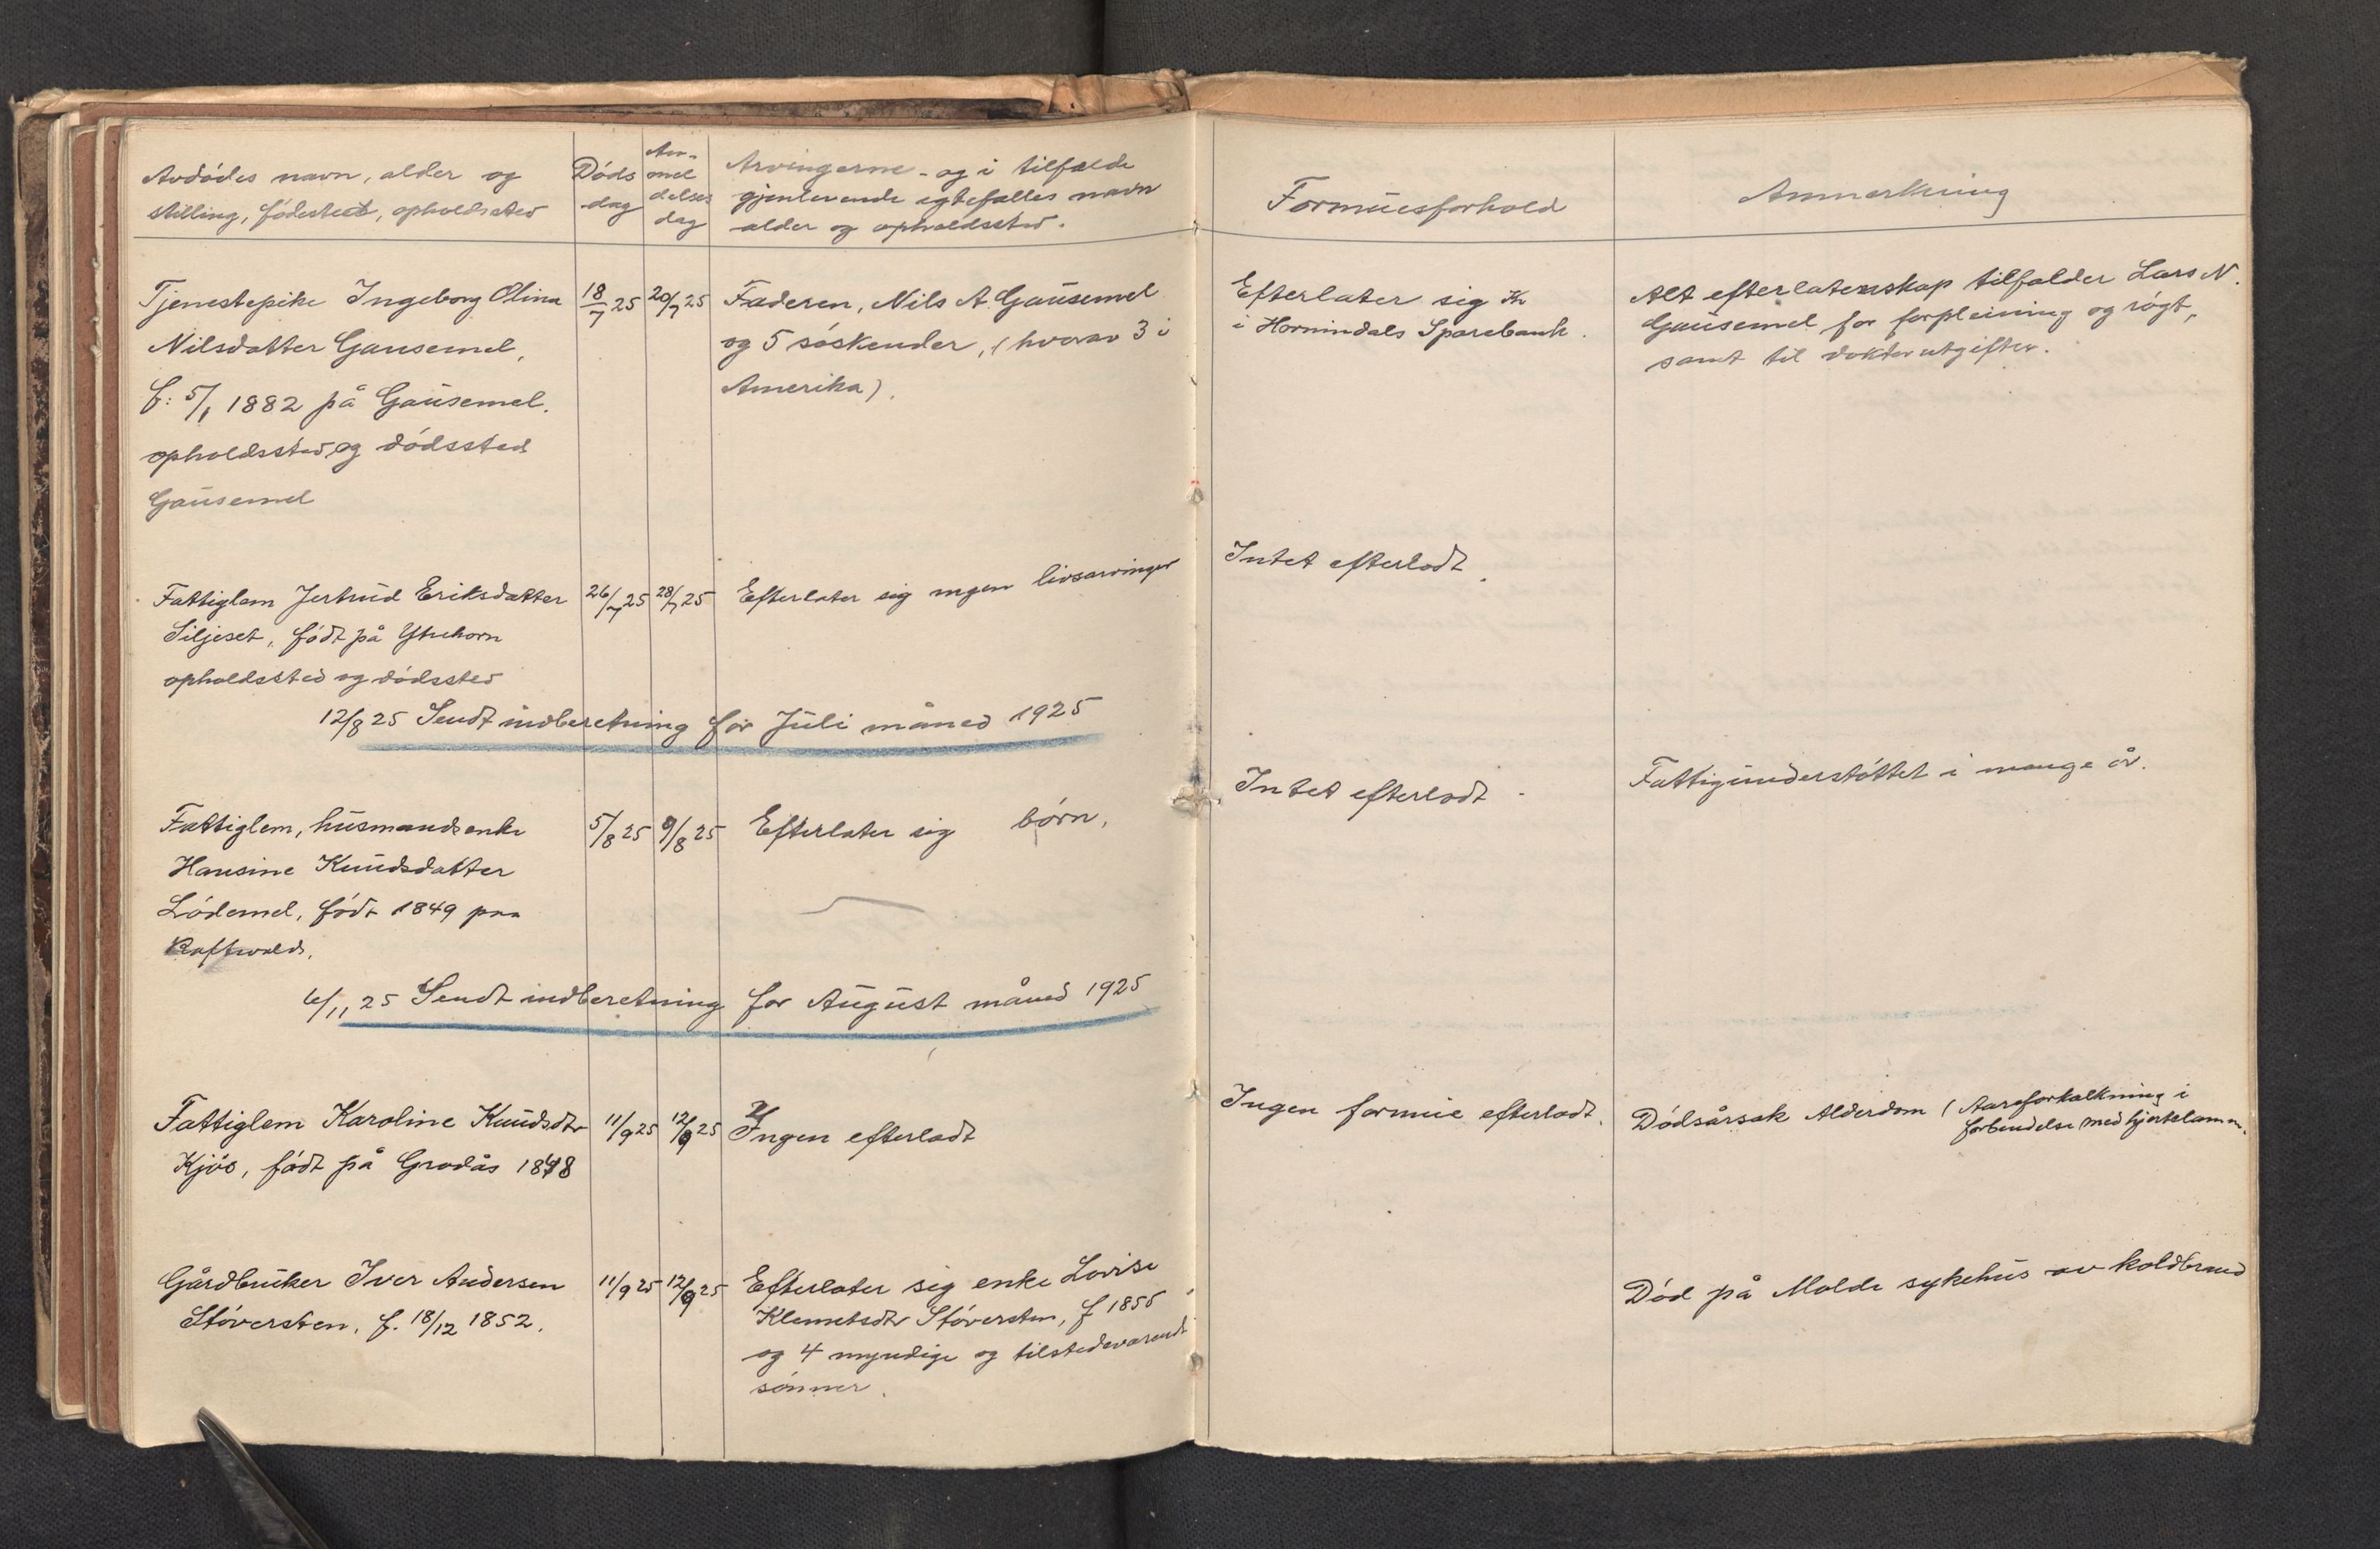 Avdødes navn, alder og
stilling, fødested, opholdssted
Døds
dag
An-
mel
delses
dag
Arvingerne - og i tilfælde
gjenlevende egtefælles navn
alder og opholdssted.
Formuesforhold
Anmerkning
Tjenestepike Ingeborg Olina
Nilsdatter Gausemel,
f: 5/1 1882 på Gausemel.
opholdssted og dødssted
Gausemel
18/7 25
20/7 25
Faderen, Nils A. Gausemel
og 5 søskender, (hvorav 3 i
Amerika).
Efterlater sig Kr
i Hornindals Sparebank.
Alt efterlatenskap tilfalder Lars N.
Gausemel for forpleining og røgt,
samt til doktorutgifter.
Fattiglem Jertrud Eriksdatter
Siljeset, født på Ytrehorn
opholdssted og dødssted
26/7 25
28/7 25
Efterlater sig ingen livsarvinger
Intet efterladt.
12/8 25 Sendt indberetning for Juli måned 1925
Fattiglem, husmandsenke
Hansine Knudsdatter
Lødemel, født 1849 paa
5/8 25
9/8 25
Efterlater sig børn.
Intet efterladt.
Fattigunderstøttet i mange år.
6/11 25 Sendt indberetning for August måned 1925
Fattiglem Karoline Knudsdtr
Kjøs, født på Grodås 1848
11/9 25
12/9 25
Ingen efterladt
Ingen formue efterladt.
Dødsårsak Alderdom (Aareforkalkning i
forbindelse med hjertelamm.
Gårdbruker Iver Andersen
Støversten. f. 18/12 1852.
11/9 25
12/9 25
Efterlater sig enke Lovise
Klemetsdtr Støversten, f 1856
og 4 myndige og tilstedeværende
sønner.
Død på Molde sykehus av koldbrand